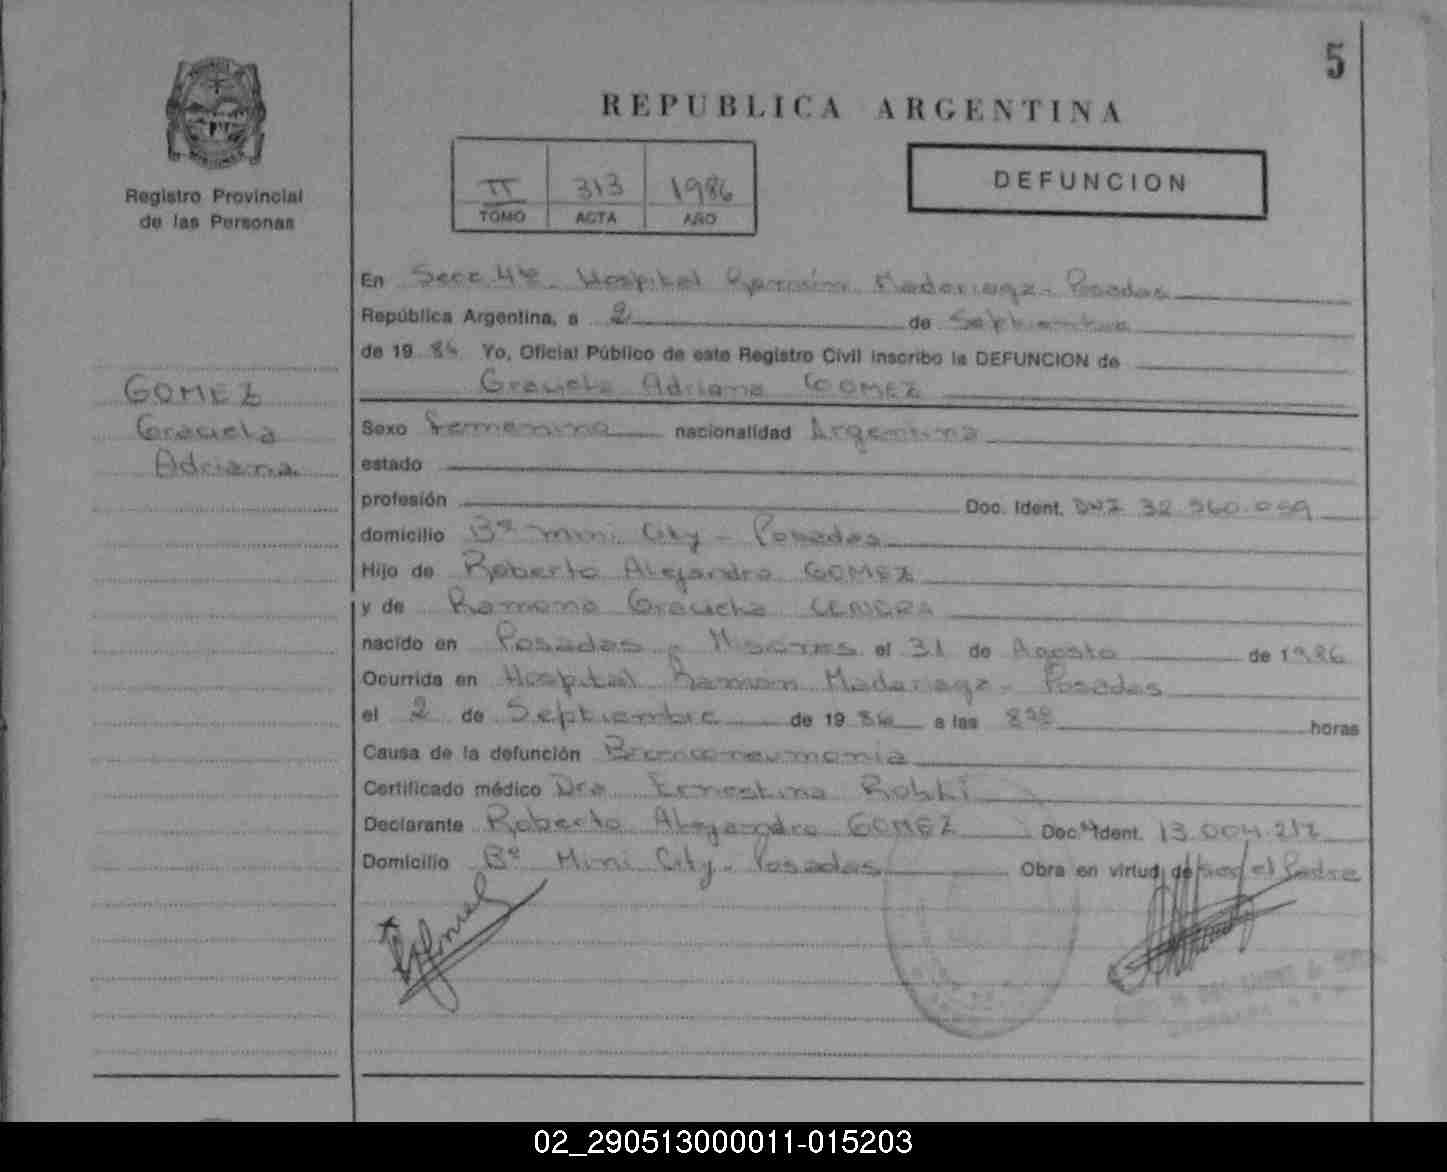 5
REPUBLICA ARGENTINA
Registro Provincial
de las Personas
II 313 1986
TOMO ACTA AÑO
DEFUNCION
GOMEZ
Graciela
Adriana
En Secc. 4ta. Hospital Ramón Madariaga - Posadas
República Argentina, a 2 de Septiembre
de 19 86 Yo, Oficial Público de este Registro Civil inscribo la DEFUNCION de
Graciela Adriana GOMEZ
Sexo Femenino nacionalidad Argentina
estado
profesión Doc. Ident. DNI 32.560.059
domicilio Bº Mini City - Posadas
Hijo de Roberto Alejandro GOMEZ
y de Ramona Graciela
nacido en Posadas - Misiones el 31 de Agosto de 1986
Ocurrida en Hospital Ramón Madariaga - Posadas
el 2 de Septiembre de 19 86 a las 8 horas
Causa de la defunción Bronconeumonia
Certificado médico Dra Ernestina
Declarante Roberto Alejandro GOMEZ Doc. Ident. 13.004.212
Domicilio Bº Mini City - Posadas Obra en virtud de ser el Padre
02_290513000011-015203